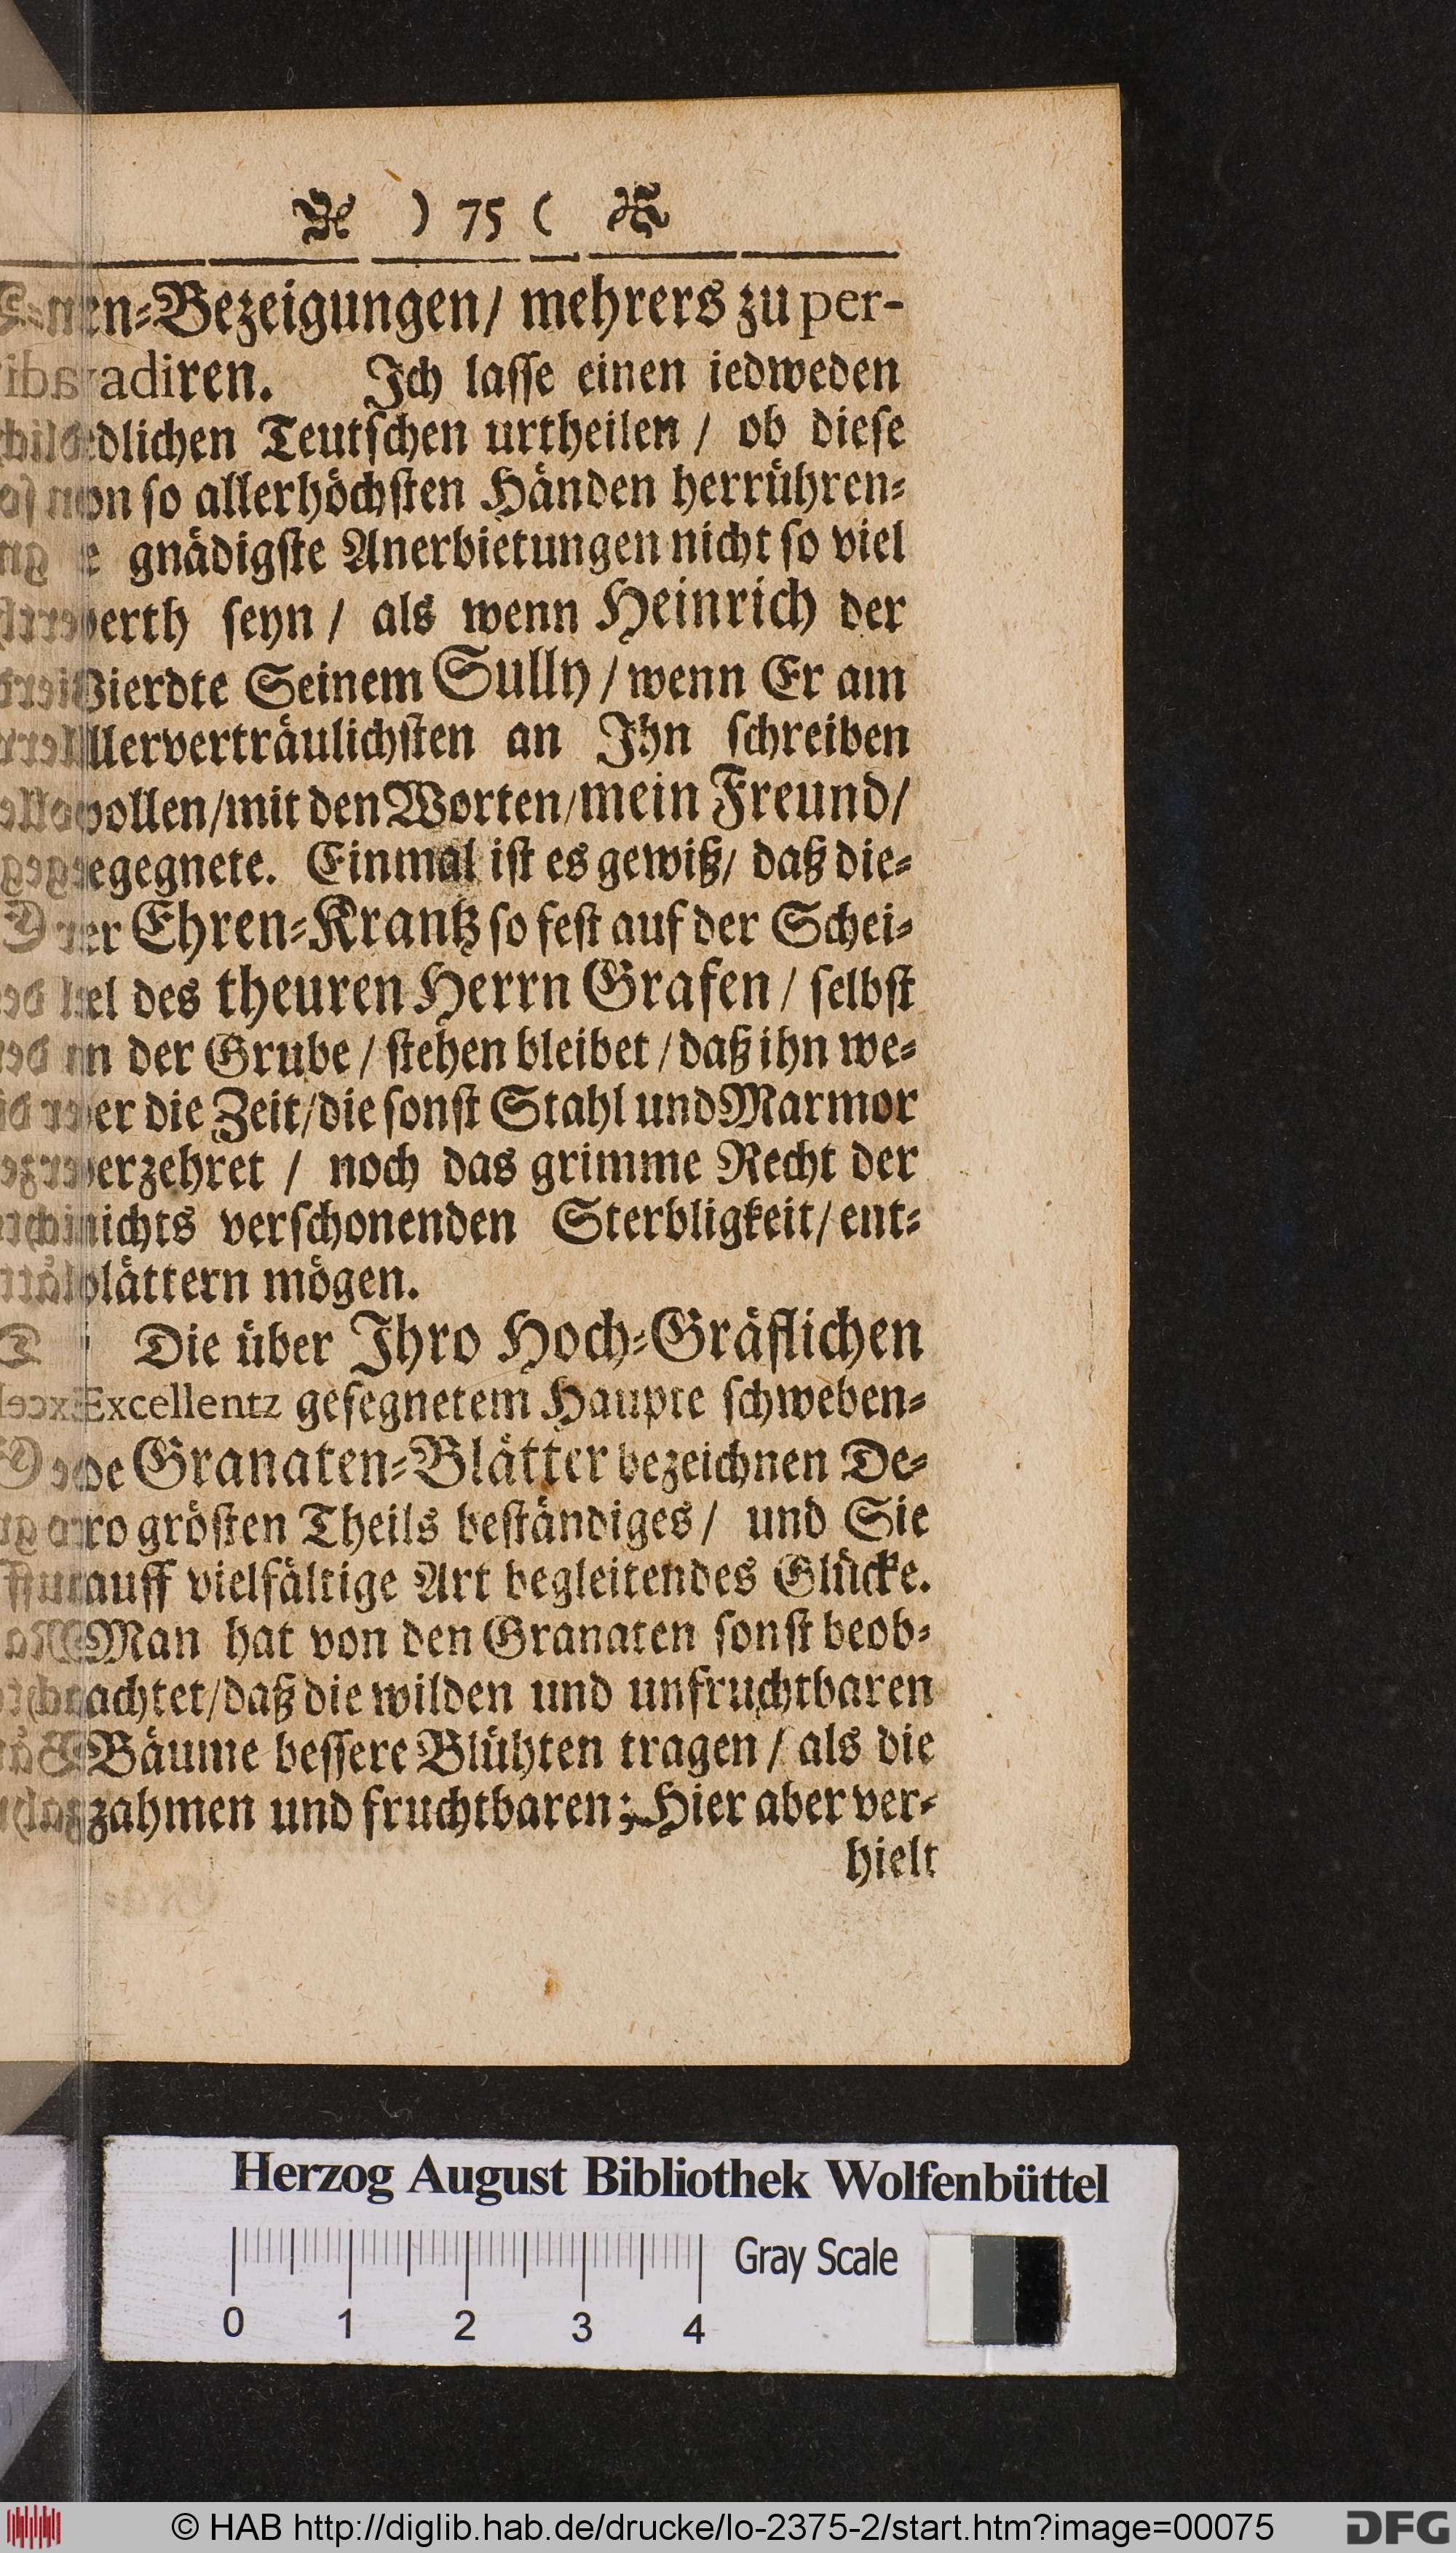 ) 75 (
nen-Bezeigungen/ mehrers zu per-
adiren. Ich lasse einen iedweden
dlichen Teutschen urtheilen / ob diese
von so allerhöchsten Händen herrühren-
e gnädigste Anerbietungen nicht so viel
werth seyn / als wenn Heinrich der
Vierdte Seinem Sully / wenn Er am
allerverträulichsten an Ihn schreiben
wollen/mit den Worten/mein Freund/
egegnete. Einmal ist es gewiß/ daß die-
er Ehren-Krantz so fest auf der Schei-
el des theuren Herrn Grafen / selbst
in der Grube / stehen bleibet / daß ihn we-
er die Zeit/die sonst Stahl und Marmor
verzehret / noch das grimme Recht der
nichts verschonenden Sterbligkeit/ ent-
blättern mögen.
Die über Ihro Hoch-Gräflichen
Excellentz gesegnetem Haupte schweben-
de Granaten-Blätter bezeichnen De-
ro grösten Theils beständiges / und Sie
auff vielfältige Art begleitendes Glücke.
Man hat von den Granaten sonst beob-
achtet/daß die wilden und unfruchtbaren
Bäume bessere Blühten tragen / als die
zahmen und fruchtbaren; Hier aber ver-
hielt
Herzog August Bibliothek Wolfenbüttel
Gray Scale
0 1 2 3 4
© HAB http://diglib.hab.de/drucke/lo-2375-2/start.htm?image=00075
DFG